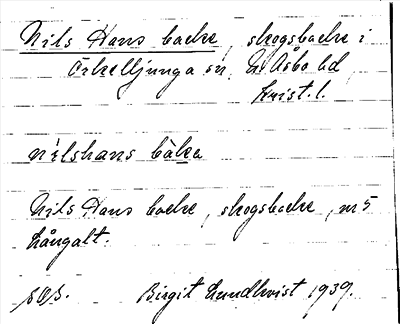 Nils Hans backe, skogsbacke i
Örkelljunga sn, N. Åsbo hd
Krist. l.
nilshans bàka
Nils Hans backe, skogsbacke, m 5
Långalt.
Birgit Lundkvist 1939.